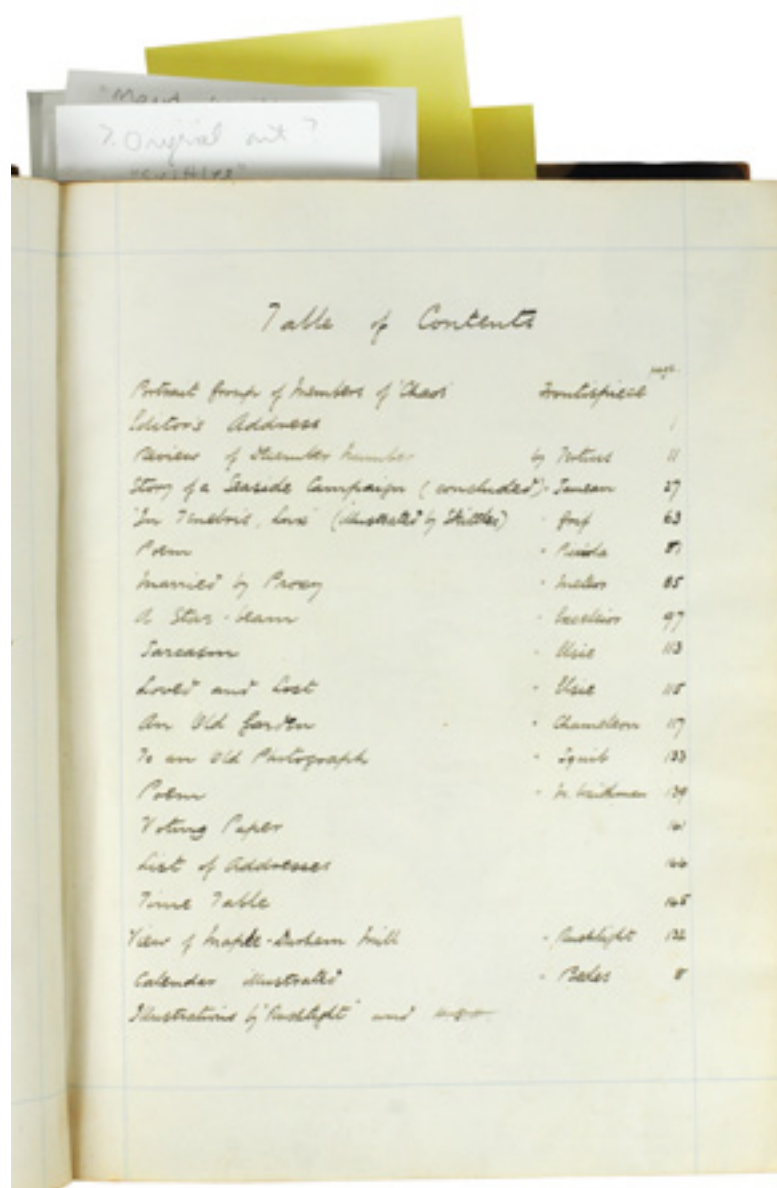 "Maud
?. Original art ?
"Skittles"
Table of Contents
page
Portrait Group of Members of 'Chaos' Frontispiece
Editor's Address 1
Review of December Number by 11
Story of a Seaside Campaign (concluded) - 37
'In Tenebris, Love' (illustrated by Skittles) - 63
Poem - 81
Married by Proxy - 85
A Star-beam - Excelsior 97
Sarcasm - Elsie 113
Loved and Lost - Elsie 115
An Old Garden - Chameleon 117
To an Old Photograph - Squib 133
Poem - 139
Voting Paper 141
List of Addresses 144
Time Table 145
View of Maple-Durham Mill - Rushlight 132
Calendar illustrated - Bedes
Illustrations by "Rushlight" and